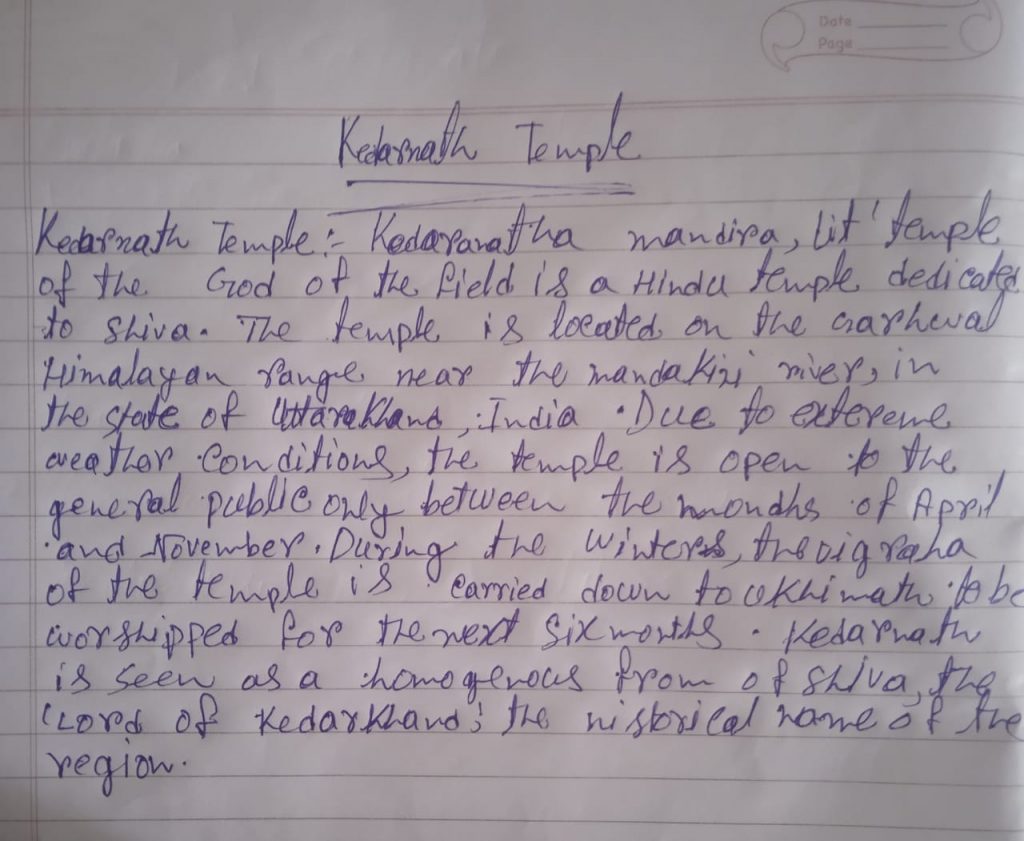 Date
Page
Kedarnath Temple
Kedarnath Temple:- Kedaranatha mandira, lit 'temple
of the God of the field is a Hindu temple dedicated
to Shiva. The temple is located on the Garhwal
Himalayan range near the mandakini river, in
the state of Uttarakhand, India. Due to extereme
weather Conditions, the temple is open to the
general public only between the mondhs of April
and November. During the Winters, the vigraha
of the temple is carried down to Ukhimath to be
worshipped for the next six months. Kedarnath
is seen as a homogenous from of Shiva, the
'Lord of Kedarkhand; the historical name of the
region.